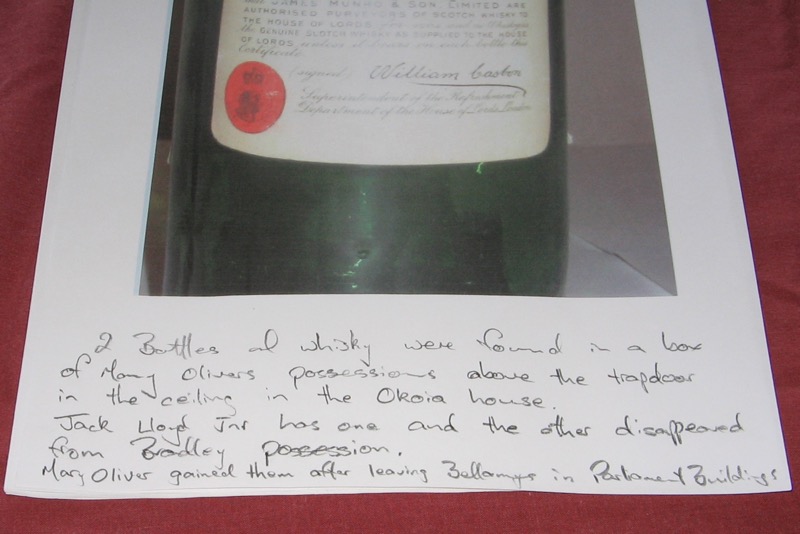 JAMES MUNRO & SON, LIMITED ARE
AUTHORISED PURVEYORS OF SCOTCH WHISKY TO
THE HOUSE OF LORDS
the GENUINE SCOTCH WHISKY AS SUPPLIED TO THE HOUSE
OF LORDS unless at least one each bottle this
Certificate.
(signed) William Casbon
Superintendent of the Refreshment
Department of the House of Lords London
2 Bottles of whisky were found in a box
of Mary Olivers possessions above the trapdoor
in the ceiling in the Okoia house.
Jack Lloyd Jnr has one and the other disappeared
from Bradley possession.
Mary Oliver gained them after leaving Bellamys in Parliament Buildings